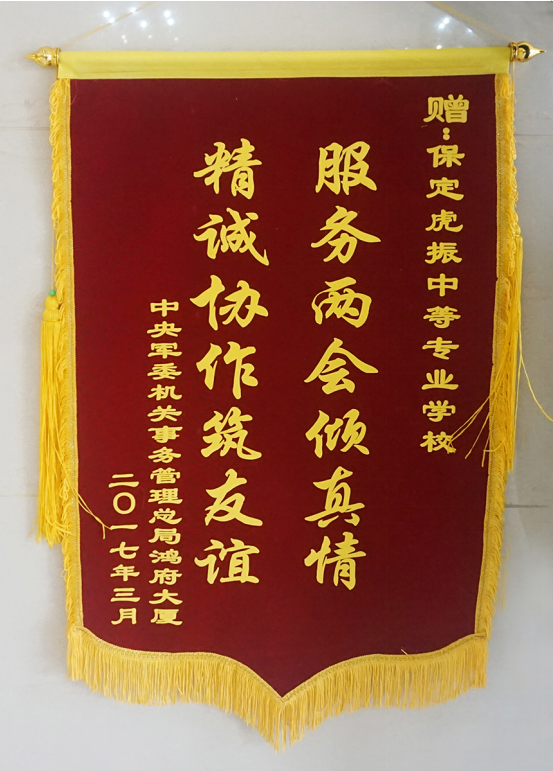 赠:保定虎振中等专业学校
服务两会倾真情
精诚协作筑友谊
中央军委机关事务管理总局鸿府大厦
二〇一七年三月